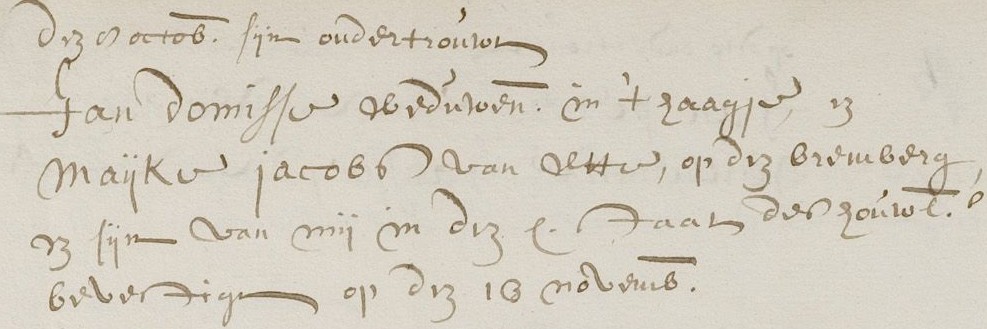 den 8 octob. sijn ondertrouwt
Jan Domisse weduwen. in 't haagje, en
Maijke jacobs van Ette, op den bremberg,
en sijn van mij in den h. staat des houwl.
bevestigt op den 18 novemb.